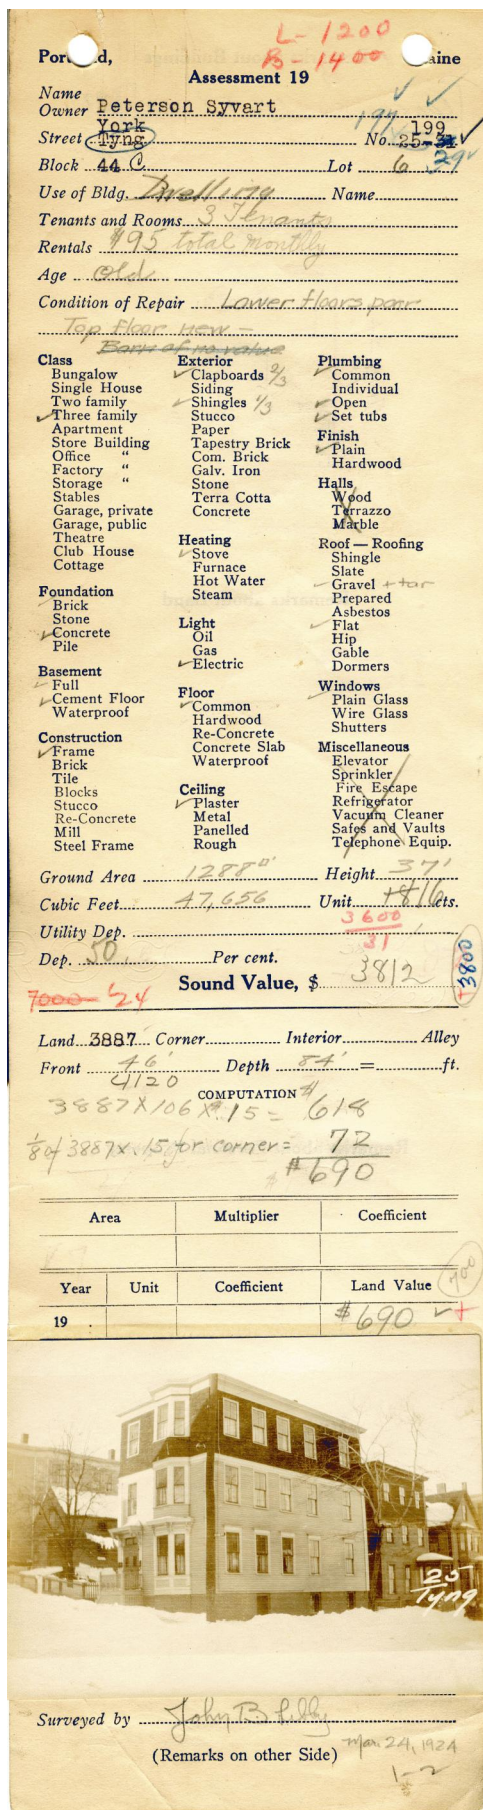 L-1200
B-1400
Portland, Maine
Assessment 19
Name
Owner Peterson Syvart
York 197 199
Street Tyng No. 25-31 29
Block 44 C Lot 6
Use of Bldg. Dwelling Name
Tenants and Rooms 3 Tenants
Rentals $95 total monthly
Age Old
Condition of Repair Lower floors poor
Top floor new -
Barn of no value
Class
Bungalow
Single House
Two family
✓Three family
Apartment
Store Building
Office "
Factory "
Storage "
Stables
Garage, private
Garage, public
Theatre
Club House
Cottage
Foundation
✓Brick
Stone
✓Concrete
Pile
Basement
✓Full
✓Cement Floor
Waterproof
Construction
✓Frame
Brick
Tile
Blocks
Stucco
Re-Concrete
Mill
Steel Frame
Exterior
✓Clapboards 2/3
Siding
✓Shingles 1/3
Stucco
Paper
Tapestry Brick
Com. Brick
Galv. Iron
Stone
Terra Cotta
Concrete
Heating
✓Stove
Furnace
Hot Water
Steam
Light
Oil
Gas
✓Electric
Floor
✓Common
Hardwood
Re-Concrete
Concrete Slab
Waterproof
Ceiling
✓Plaster
Metal
Panelled
Rough
Plumbing
✓Common
Individual
✓Open
✓Set tubs
Finish
✓Plain
Hardwood
Halls
Wood
Terrazzo
Marble
Roof — Roofing
Shingle
Slate
✓Gravel + tar
Prepared
Asbestos
✓Flat
Hip
Gable
Dormers
Windows
✓Plain Glass
Wire Glass
Shutters
Miscellaneous
Elevator
Sprinkler
Fire Escape
Refrigerator
Vacuum Cleaner
Safes and Vaults
Telephone Equip.
Ground Area 1288□' Height 37'
Cubic Feet 47,656 Unit 16 cts.
Utility Dep. 3600
31
Dep. 50 Per cent.
Sound Value, $ 3812 3800
7000- '24
Land 3887 Corner Interior Alley
Front 46' Depth 84' = ft.
4120
COMPUTATION
3887 x 106 x .15 = 618
1/8 of 3887 x .15 for corner = 72
$690
Area Multiplier Coefficient
700
Year Unit Coefficient Land Value
19 $690 ✓ +
25
Tyng
Surveyed by John B Libby
(Remarks on other Side) Mar. 24, 1924
1-2